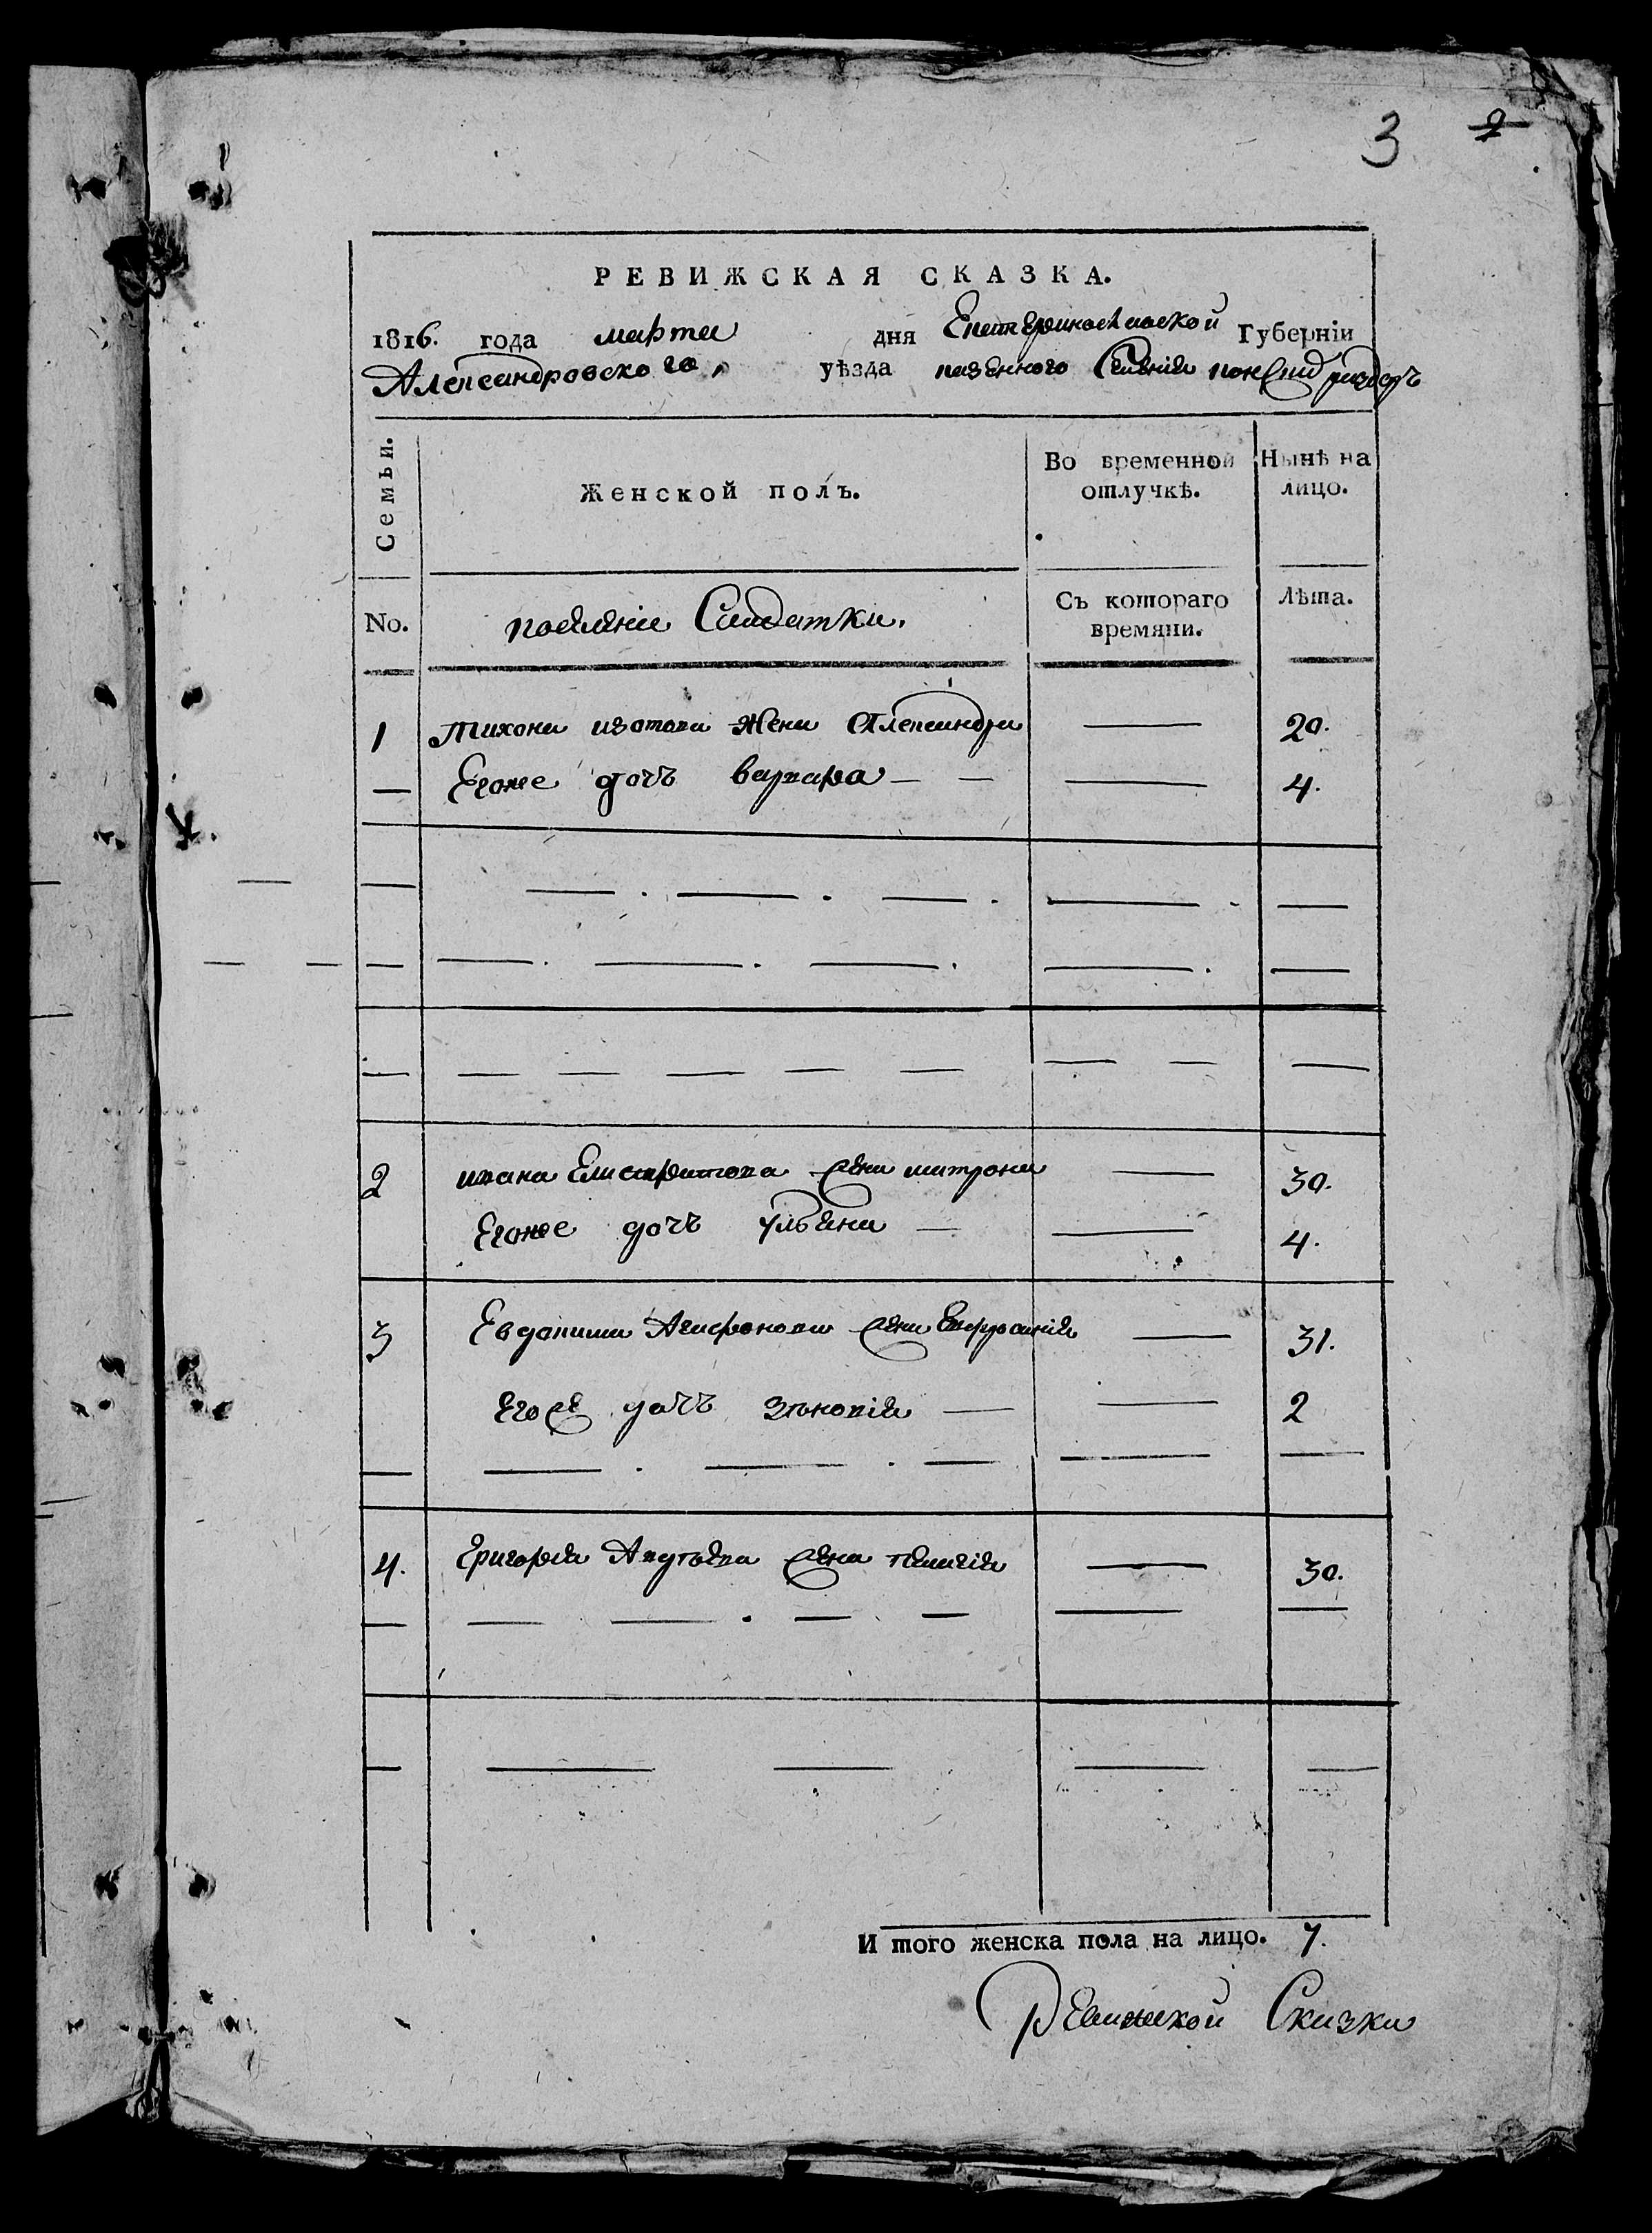 3 2
РЕВИЖСКАЯ СКАЗКА.
1816. года марта дня Екатеринославской Губерніи
Александровского, уѣзда казенного Селенія
Семьи.
Женской полъ.
Во временной отлучкѣ.
Нынѣ на лицо.
No.
Солдатки.
Съ котораго времяни.
Лѣта.
1 Тихона изотова жена Александра 20.
Егоже дочь варвара 4.
2 ивана Елистратова жена матрона 30.
Егоже дочь ульяна 4.
3 Евдокима Агафонова жена Евфросинія 31.
Егоже дочь зѣновія 2
4. Григорія жена 30.
И того женска пола на лицо. 7.
Ревижской Сказки